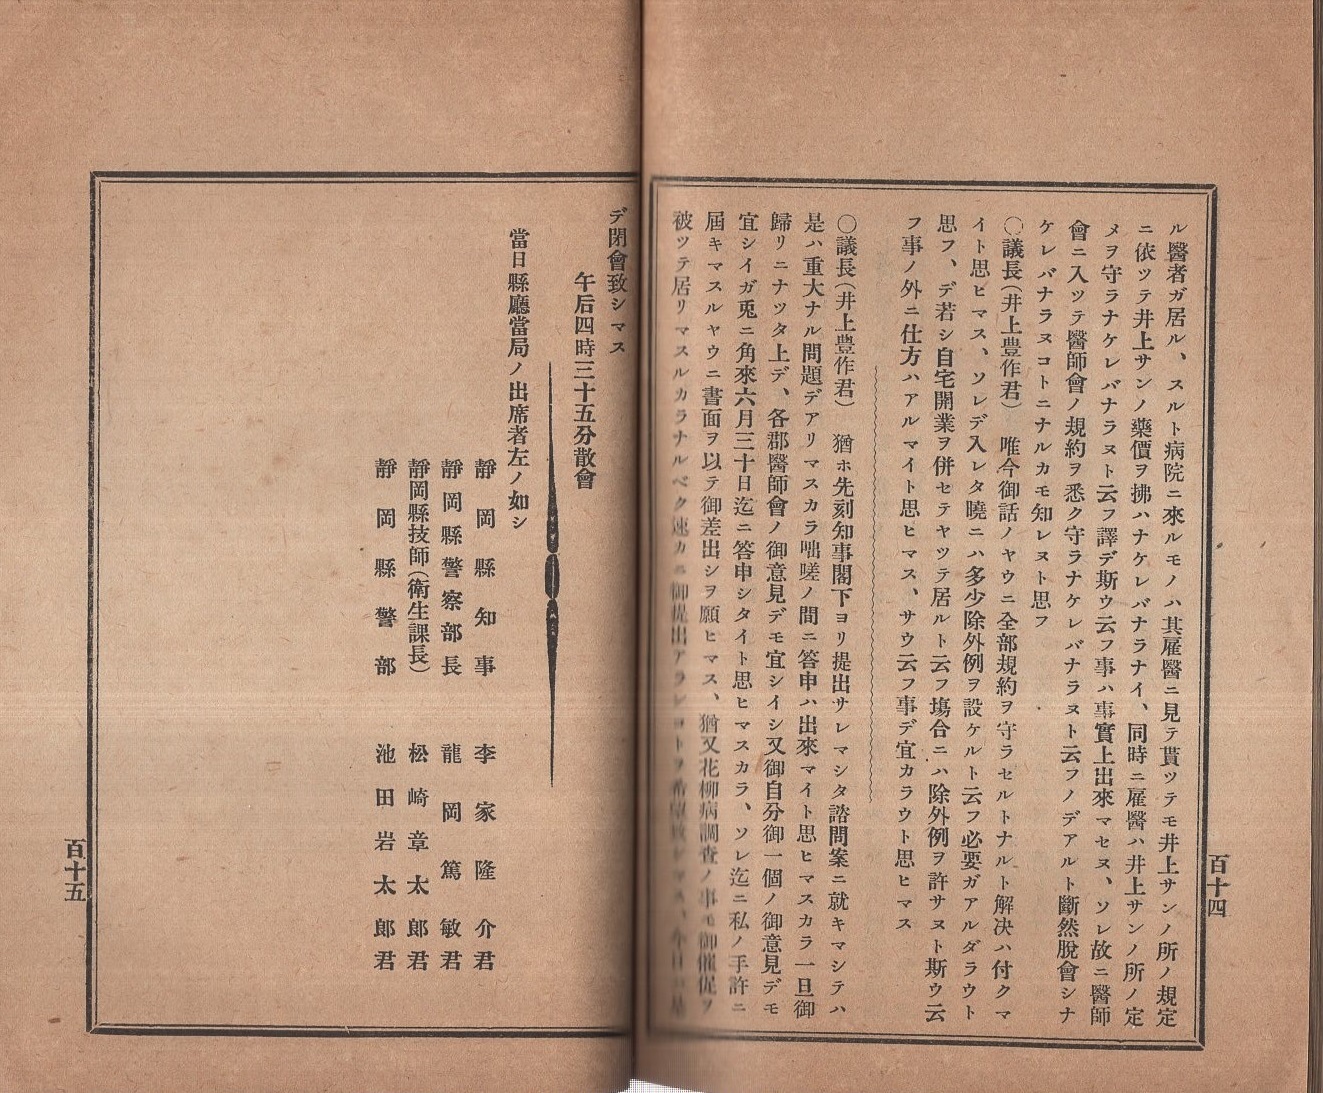 ル醫者ガ居ル、スルト病院ニ來ルモノハ其雇醫ニ見テ貰ツテモ井上サンノ所ノ規定
ニ依ツテ井上サンノ藥價ヲ拂ハナケレバナラナイ、同時ニ雇醫ハ井上サンノ所ノ定
メヲ守ラナケレバナラヌト云フ譯デ斯ウ云フ事ハ事實上出來マセヌ、ソレ故ニ醫師
會ニ入ツテ醫師會ノ規約ヲ悉ク守ラナケレバナラヌト云フノデアルト斷然脫會シナ
ケレバナラヌコトニナルカモ知レヌト思フ
〇議長(井上豊作君) 唯今御話ノヤウニ全部規約ヲ守ラセルトナルト解决ハ付クマ
イト思ヒマス、ソレデ入レタ曉ニハ多少除外例ヲ設ケルト云フ必要ガアルダラウト
思フ、デ若シ自宅開業ヲ併セテヤツテ居ルト云フ塲合ニハ除外例ヲ許サヌト斯ウ云
フ事ノ外ニ仕方ハアルマイト思ヒマス、サウ云フ事デ宜カラウト思ヒマス
〇議長(井上豊作君) 猶ホ先刻知事閣下ヨリ提出サレマシタ諮問案ニ就キマシテハ
是ハ重大ナル問題デアリマスカラ咄嗟ノ間ニ答申ハ出來マイト思ヒマスカラ一旦御
歸リニナツタ上デ、各郡醫師會ノ御意見デモ宜シイシ又御自分御一個ノ御意見デモ
宜シイガ兎ニ角來六月三十日迄ニ答申シタイト思ヒマスカラ、ソレ迄ニ私ノ手許ニ
屆キマスルヤウニ書面ヲ以テ御差出シヲ願ヒマス、猶又花柳病調査ノ事モ御催促ヲ
被ツテ居リマスルカラナルベク速カニ御提出アラレコトヲ希望致シマス、今日ハ是
百十四
デ閉會致シマス
午后四時三十五分散會
當日縣廳當局ノ出席者左ノ如シ
靜岡縣知事 李家隆介君
靜岡縣警察部長 龍岡篤敏君
靜岡縣技師(衛生課長) 松崎章太郎君
靜岡縣警部 池田岩太郎君
百十五